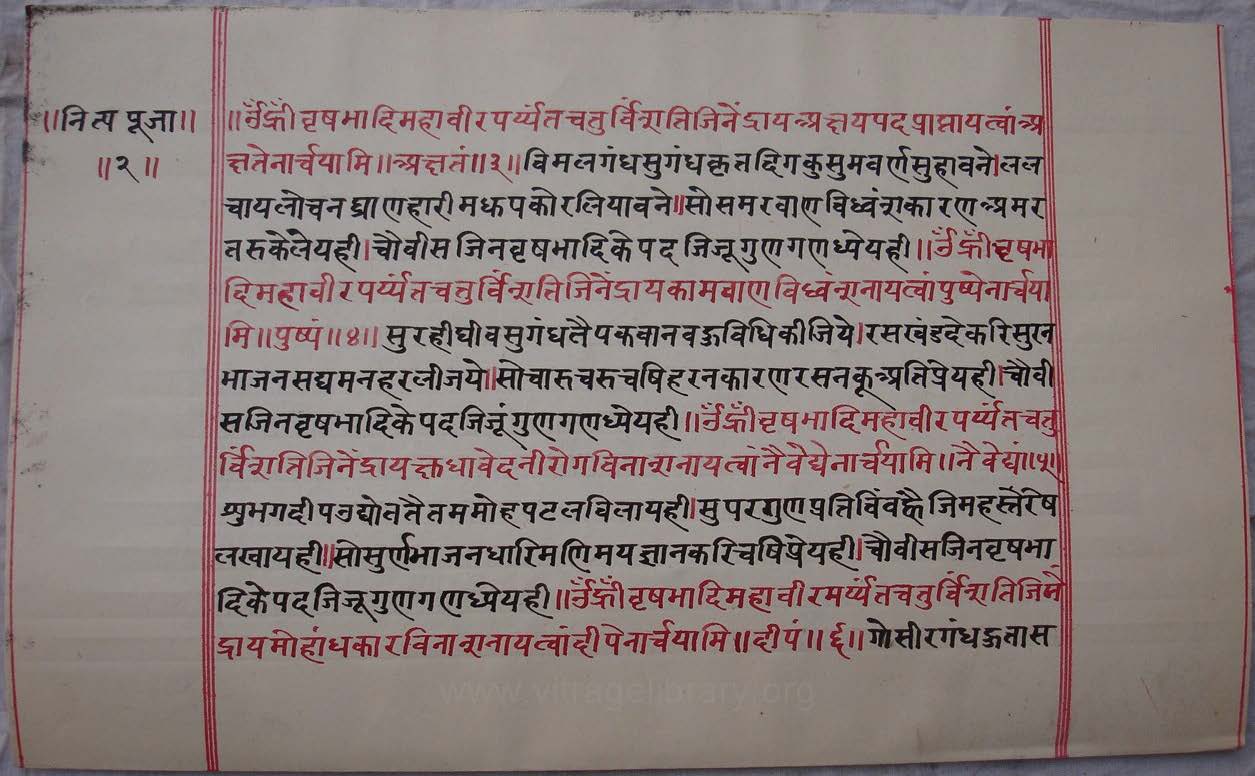 ॥नित्य पूजा॥
॥२॥
॥ॐह्रीं वृषभादिमहावीरपर्य्यंतचतुर्विंशतिजिनेंद्रायअक्षयपदप्राप्तायत्वांअ
क्षतेनार्चयामि॥अक्षतं॥३॥विमलगंधसुगंधकृतदिगकुसुमवर्णसुहावने।लल
चायलोचनघ्राणहारीमधपकोरलियावने॥सोसमरबाणविध्वंशकारणअमर
तरुकेलेयही।चौवीसजिनवृषभादिकेपदजिजूगुणगणध्येयही॥ॐह्रींवृषभा
दिमहावीरपर्य्यंतचतुर्विंशतिजिनेंद्रायकामबाणविध्वंशनायत्वांपुष्पेनार्चया
मि॥पुष्पं॥४॥सुरहीघीवसुगंधलैपकवानबहुविधिकीजिये।रसखंडदेकरिसुरन
भाजनसद्यमनहरलीजये॥सोचारुचरुचषिहरनकारणरसनकूअतिप्रेयही।चौवी
सजिनवृषभादिकेपदजिजूंगुणगणध्येयही॥ॐह्रींवृषभादिमहावीरपर्य्यंतचतु
र्विंशतिजिनेंद्रायक्षुधावेदनीरोगविनाशनायत्वांनैवैद्येनार्चयामि॥नैवेद्यं॥५॥
शुभगदीपउद्योततैतममोहपटलविलायही।सुपरगुणप्रतिविंवह्वैजिमहस्तरेष
लखायही॥सोसुर्णभाजनधारिमणिमयज्ञानकरिचषिप्रेयही।चौवीसजिनवृषभा
दिकेपदजिजूगुणगणध्येयही॥ॐह्रींवृषभादिमहावीरमर्य्यंतचतुर्विंशतिजिनें
द्रायमोहांधकारविनाशनायत्वांदीपेनार्चयामि॥दीपं॥६॥गोसीरगंधहुतास
www.vitragelibrary.org